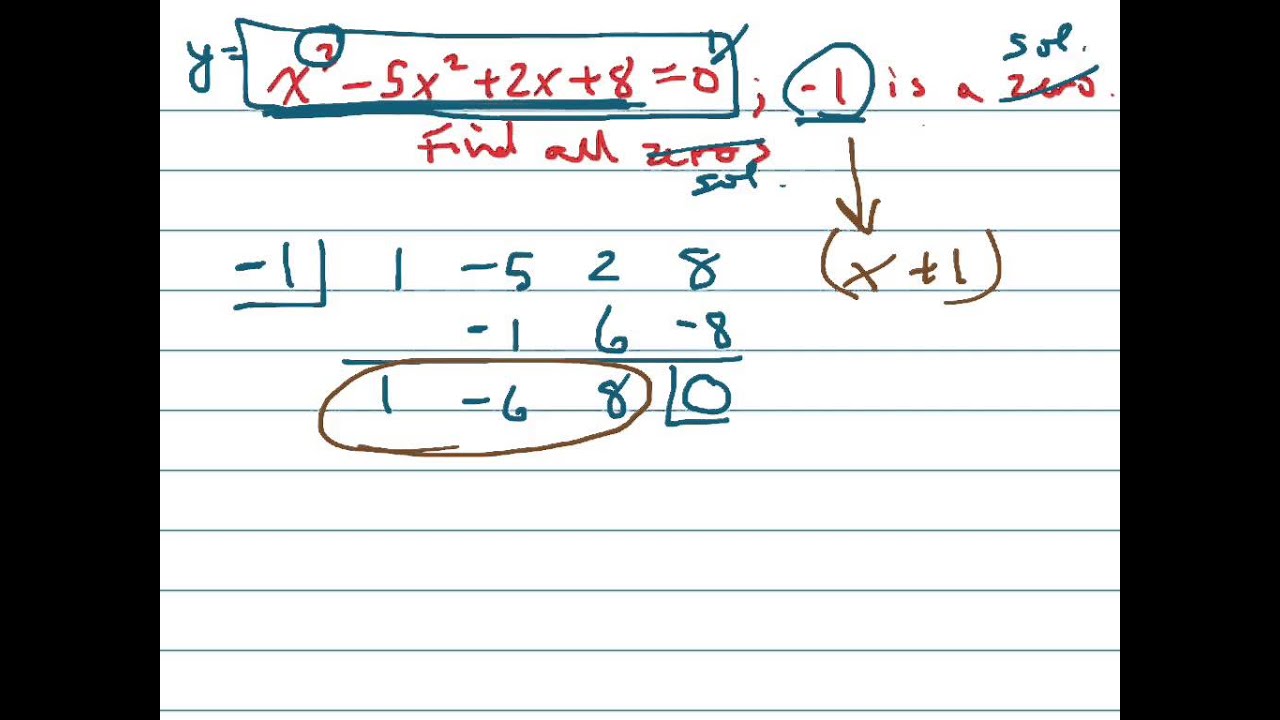 y = x³ - 5x² + 2x + 8 = 0 ; -1 is a zero. sol.
Find all zeros sol.
-1 1 -5 2 8 (x + 1)
-1 6 -8
1 -6 8 0